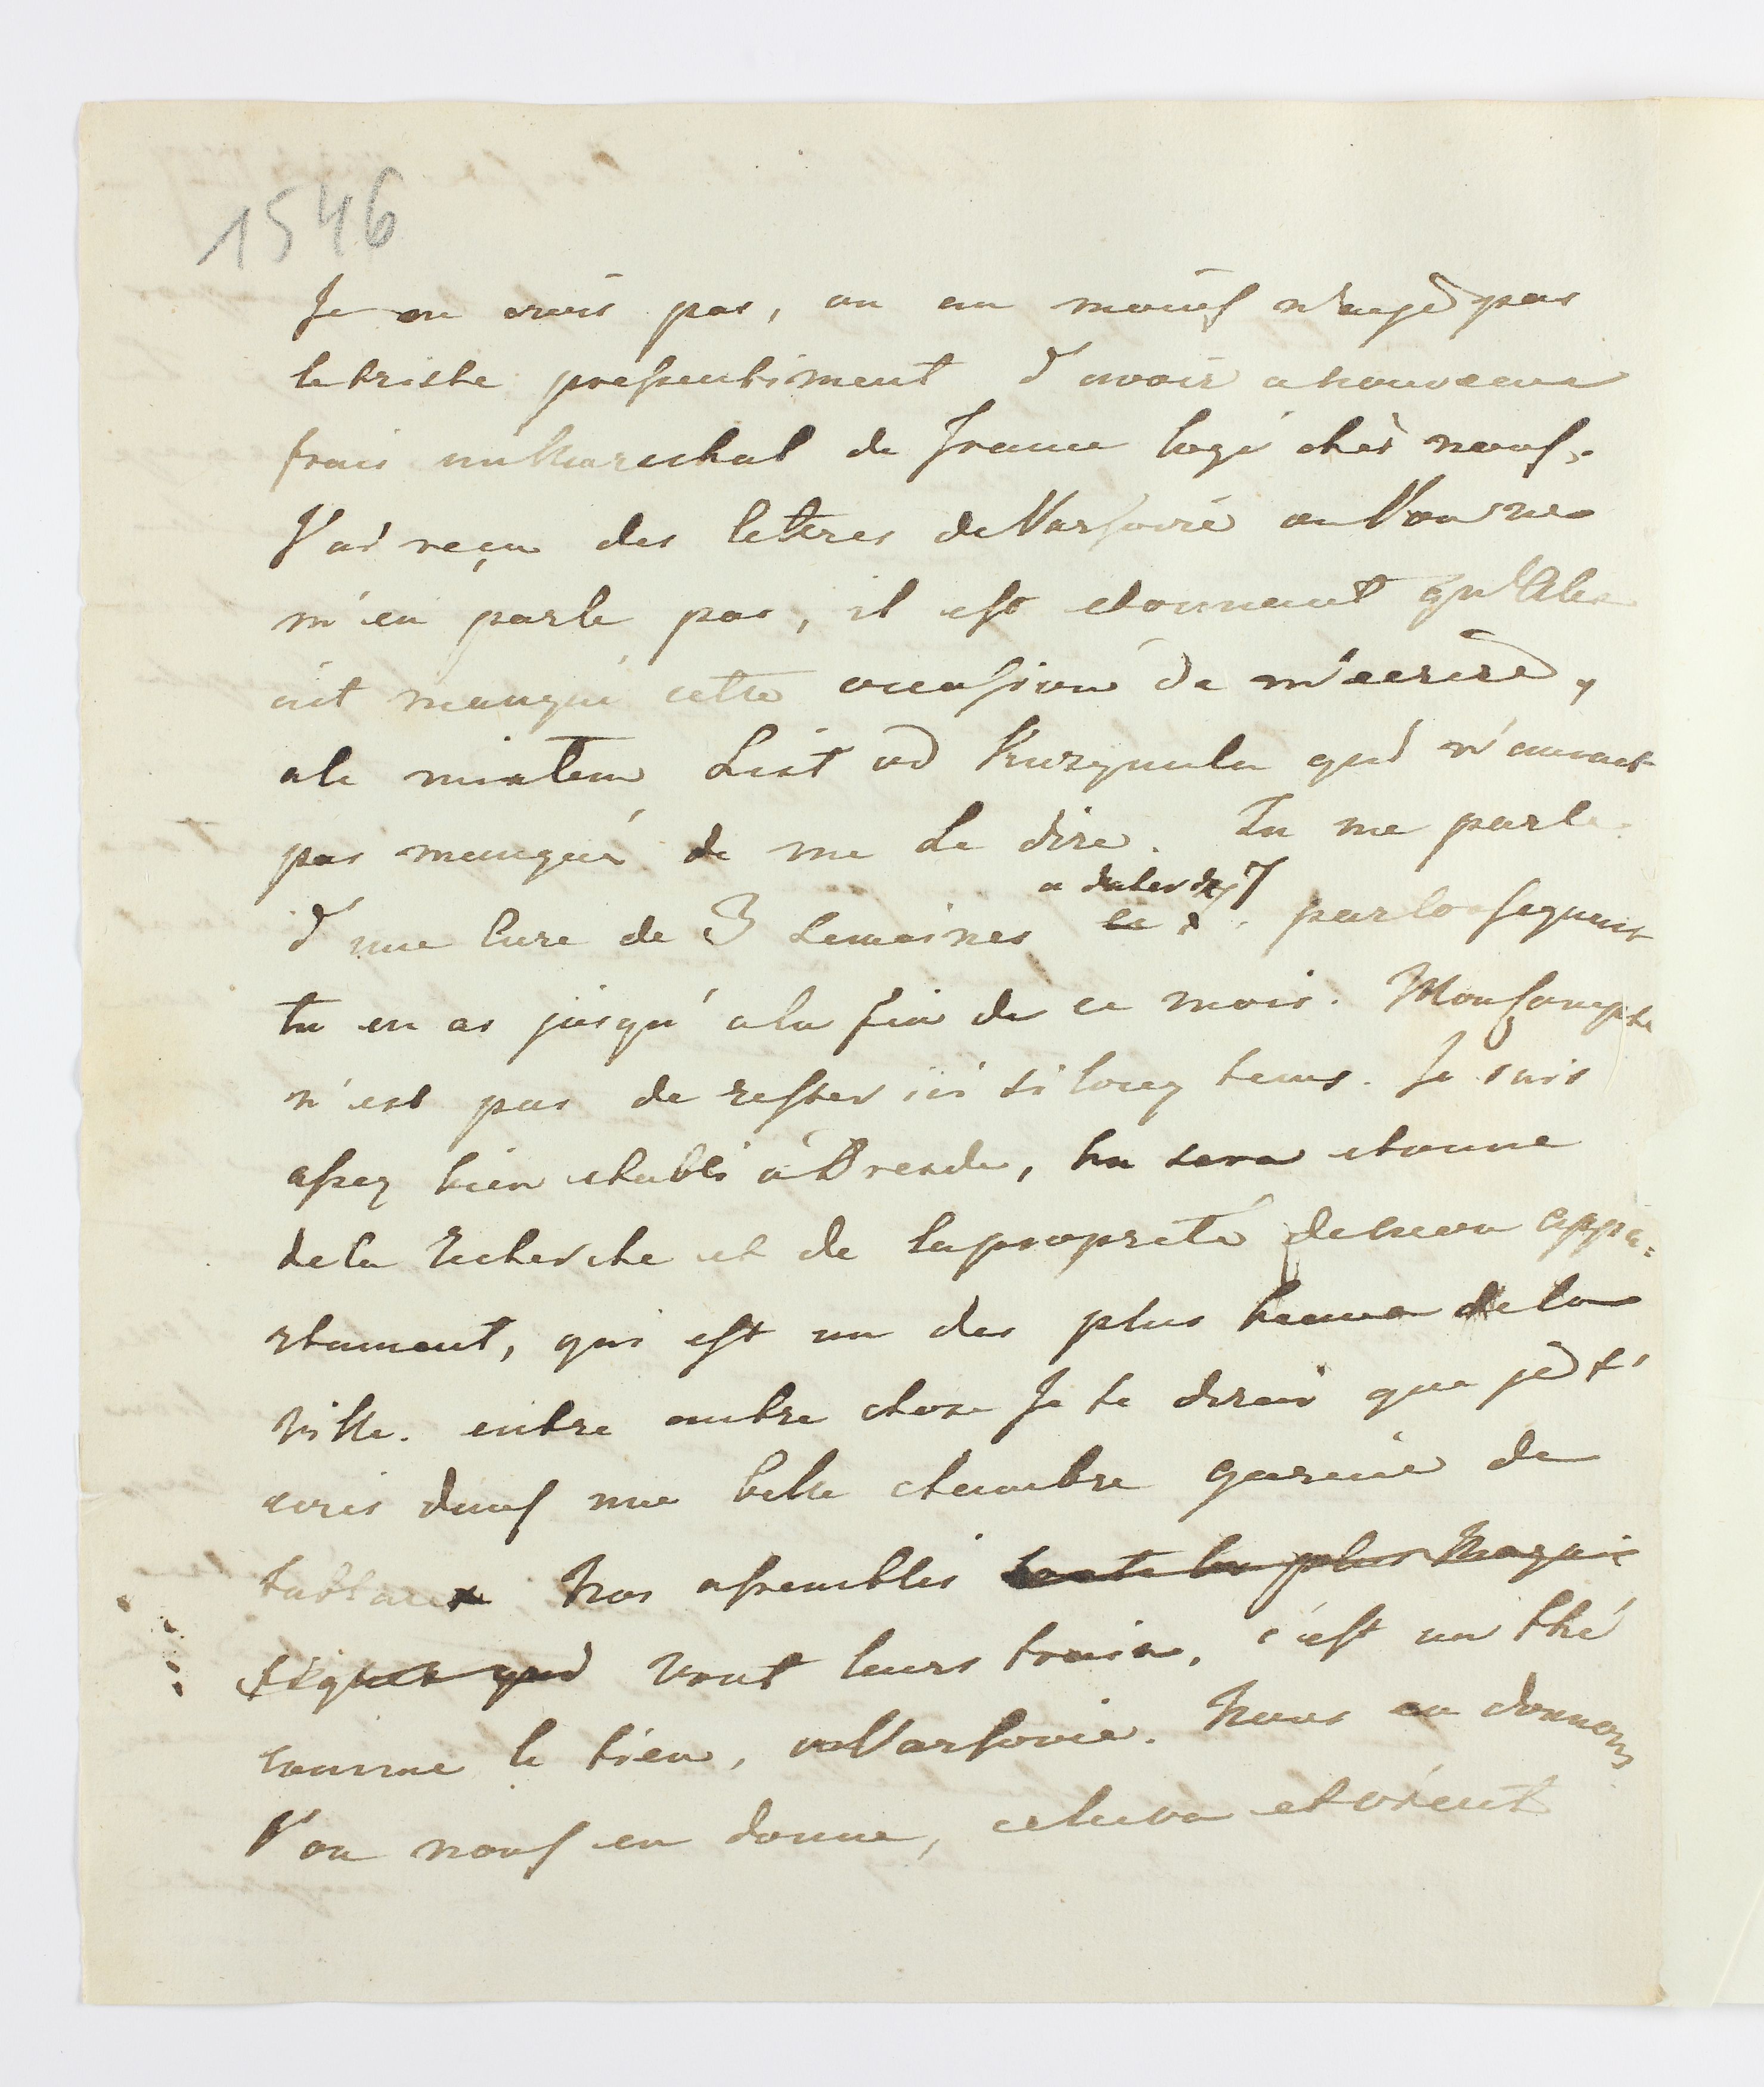 1546
Je ne crois pas, ou au moins n'ayé pas
le triste pressentiment d'avoir a nouveaux
frais un Marechal de France logé chés nous.
J'ai reçu des lettres de Varsovie ou l'on ne
m'en parle pas, il est etonnant qu'Alex
ait manqué cette occasion de m'ecrire,
ale miałem List od Kuzynula qui n'aurait
pas manqué de me le dire. Tu me parle
a dater du 7
d'une Cure de 3 semaines par consequent
tu en as jusqu'a la fin de ce mois. Mon compte
n'est pas de rester ici si long tems. Je suis
assez bien etabli à Dresde, tu sera etonné
de la recherche et de la propreté de mon appa=
rtement, qui est un des plus beaux de la
ville. entre autre chose Je te dirai que je t'
ecris dans une belle chambre garnie de
tableaux Nos assemblés toute les plus Magni
figues qui vont leurs train, c'est un thé
comme le tien, a Varsovie. Nous en donnons
l'on nous en donne, cela va et vient